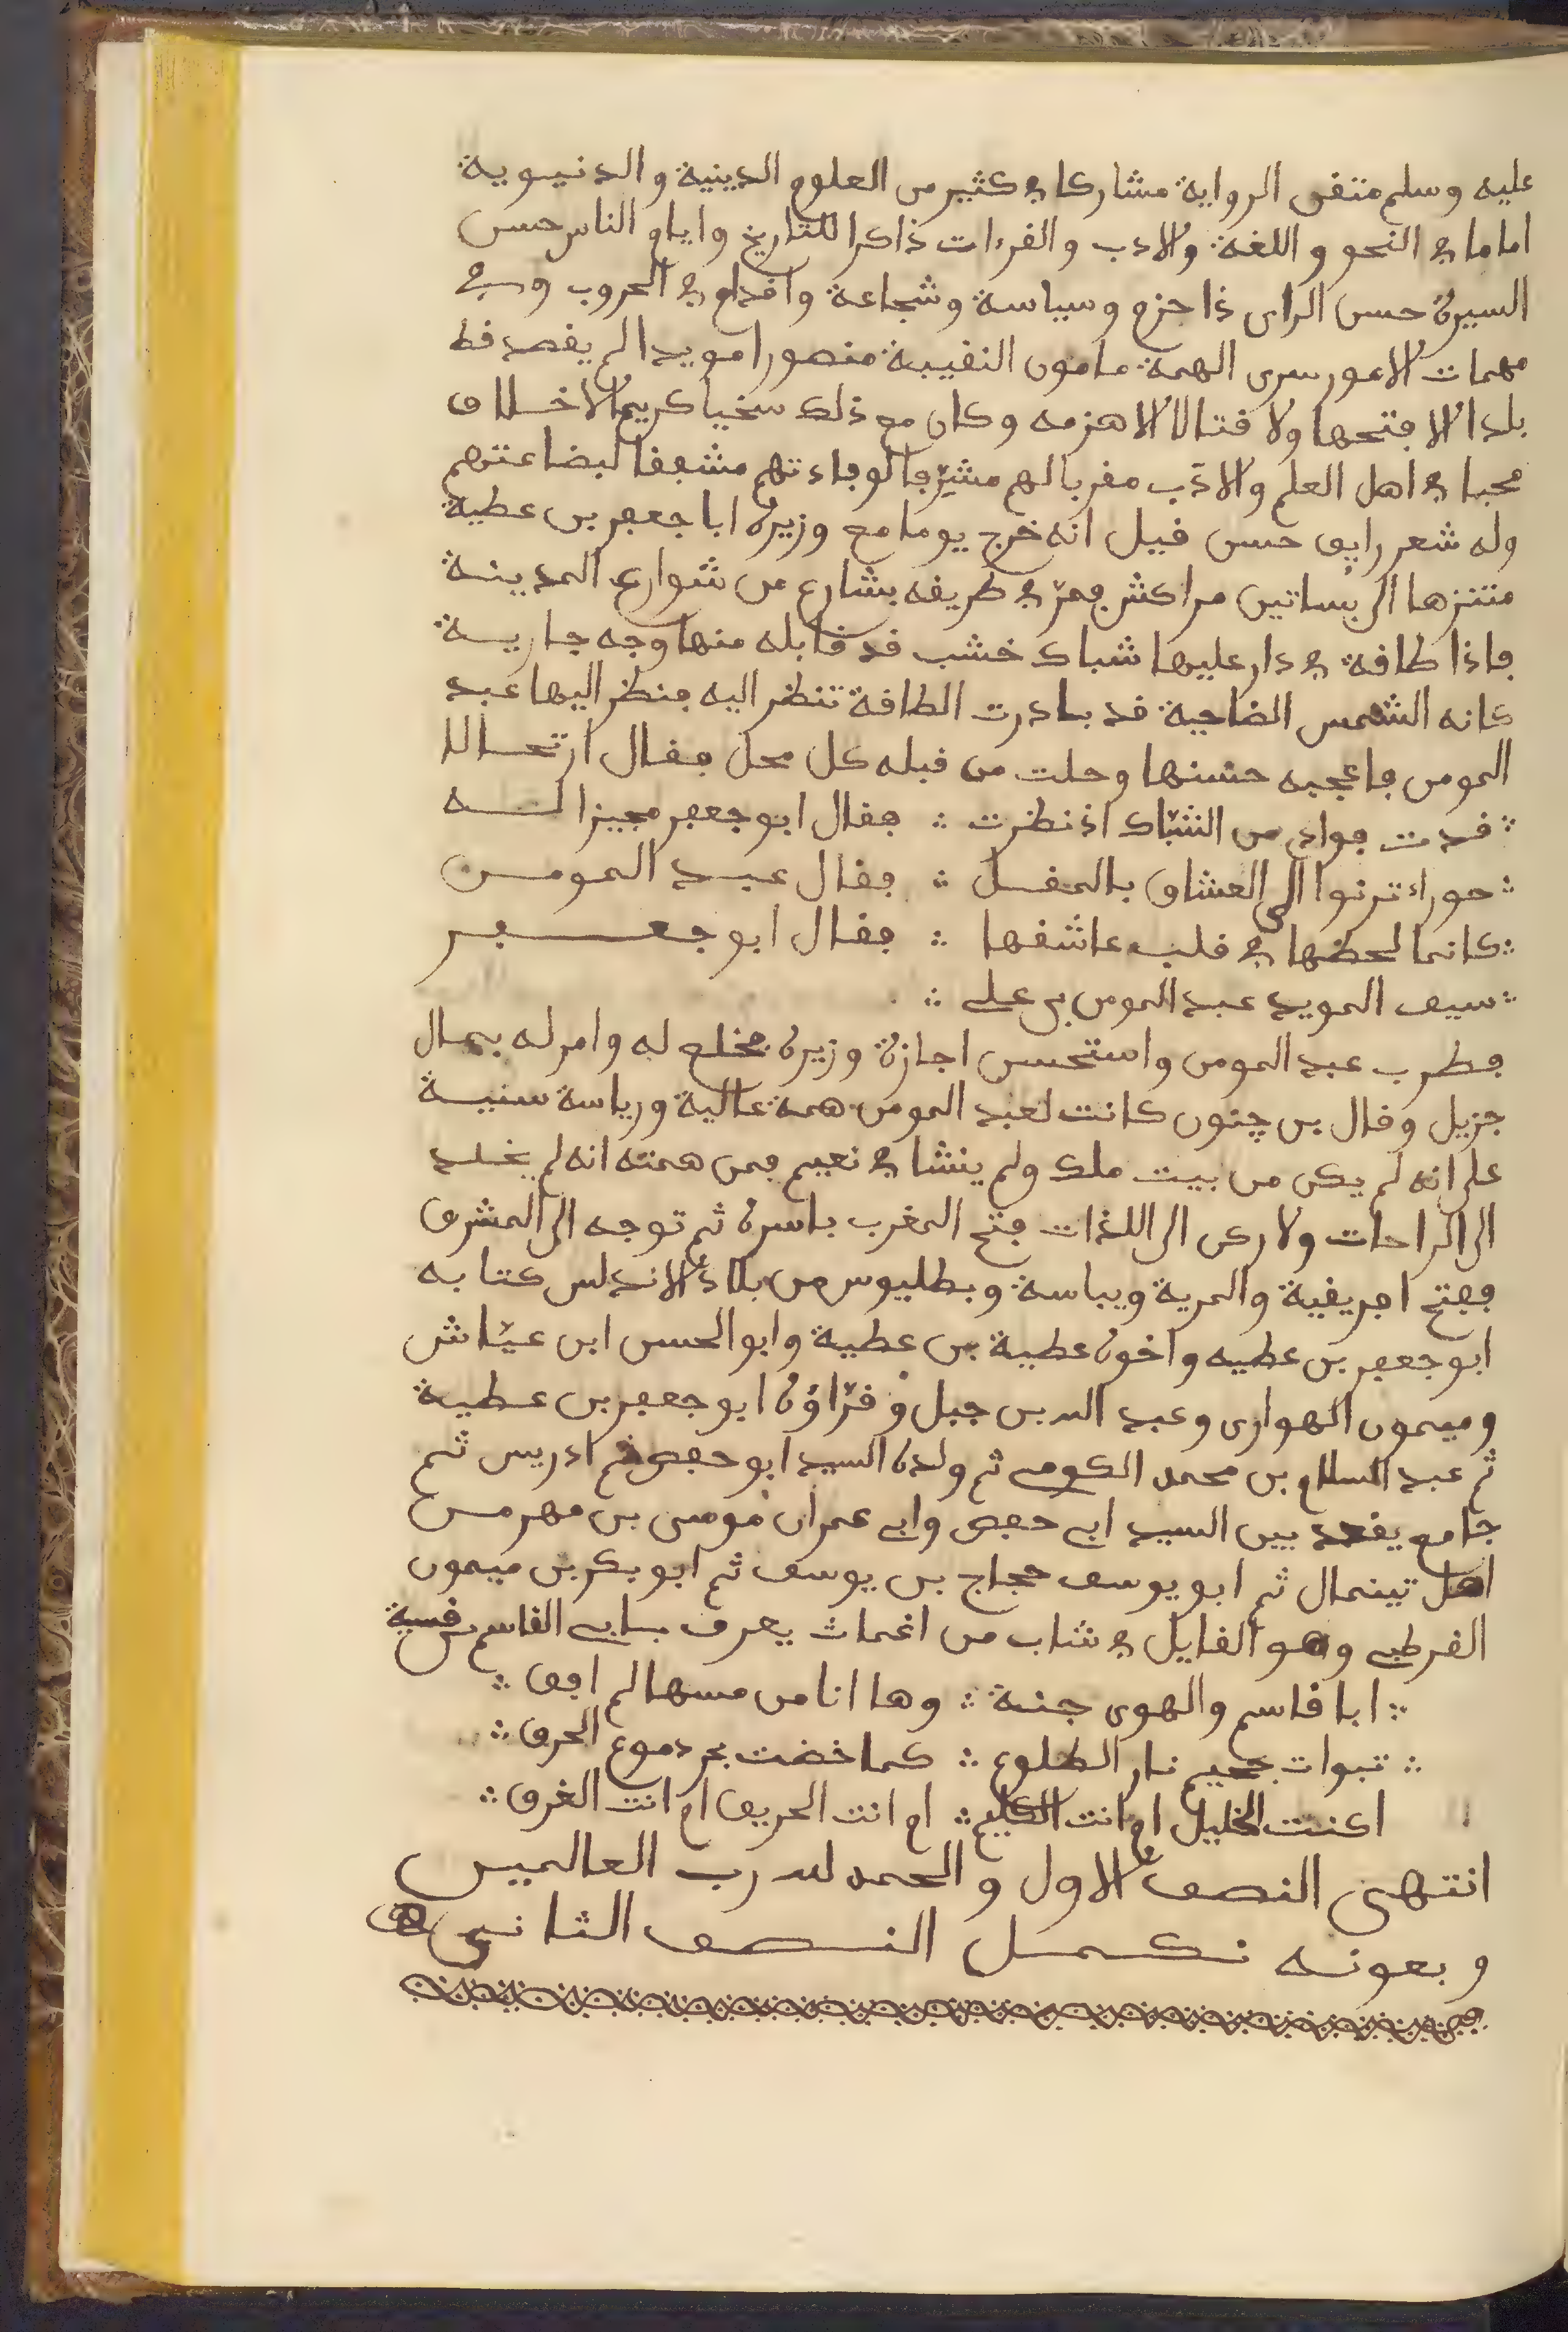 عليه وسلم متفن الرواية مشاركا في كثير من العلوم الدينية والدنيوية
اماما في النحو واللغة والادب والقرءات ذاكرا للتاريخ وايام الناس حسن
السيرة حسن الراى ذا حزم وسياسة وشجاعة واقدام في الحروب وفي
مهمات الامور سرى الهمة مامون النقيبة منصورا مويدا لم يقصد قط
بلدا الا فتحها ولا قتالا الا هزمه وكان مع ذلك سخيا كريم الاخلاق
محبا في اهل العلم والادب مقربا لهم مشرفا لوفادتهم مشفقا لبضاعتهم
وله شعر رايق حسن قيل انه خرج يوما مع وزيره ابا جعفر بن عطية
متنزها الى بساتين مراكش فمر في طريقه بشارع من شوارع المدينة
فاذا طاقة في دار عليها شباك خشب قد قابله منها وجه جارية
كانه الشمس الضاحية قد بادرت الطاقة تنظر اليه فنظر اليها عبد
المومن فاعجبه حسنها وحلت من قبله كل محل فقال ارتحالا
∴ قدت فوادي من الشباك اذ نظرت ∴ فقال ابو جعفر مجيزا له
∴ حوراء ترنوا الى العشاق بالمقل ∴ فقال عبد المومن
∴ كانما لحظها في قلب عاشقها ∴ فقال ابو جعفر
∴ سيف المويد عبد المومن بن علي ∴
فطرب عبد المومن واستحسن اجازة وزيره فخلع له وامر له بمال
جزيل وقال بن جنون كانت لعبد المومن همة عالية ورياسة سنية
على انه لم يكن من بيت ملك ولم ينشا في نعيم فمن همته انه لم يخلد
الى الراحات ولا ركن الى اللذات فتح المغرب باسره ثم توجه الى المشرق
ففتح افريقية والمرية وبياسة وبطليوس من بلاد الاندلس كتابه
ابو جعفر بن عطيه واخوه عطية بن عطية وابو الحسن ابن عياش
وميمون الهوارى وعبد الله بن جبل وزراؤه ابو جعفر بن عطية
ثم عبد السلام بن محمد الكومي ثم ولده السيد ابو حفص ثم ادريس ثم
جامع يقعد بين السيد ابي حفص وابي عمران موسى بن مهر من
اهل تينمال ثم ابو يوسف حجاج بن يوسف ثم ابو بكر بن ميمون
القرطبي وهو القايل في شاب من اغمات يعرف بابي القاسم بن
∴ ابا قاسم والهوى جنة ∴ وها انا من مسها لم افق ∴
∴ تبوات جحيم نار الضلوع ∴ كما خضت بحر دموع الحرق ∴
اكنت الخليل ام انت الكليم ∴ ام انت الحريق ام انت الغرق ∴
انتهى النصف الاول والحمد لله رب العالمين
وبعونه نكمل النصف الثاني